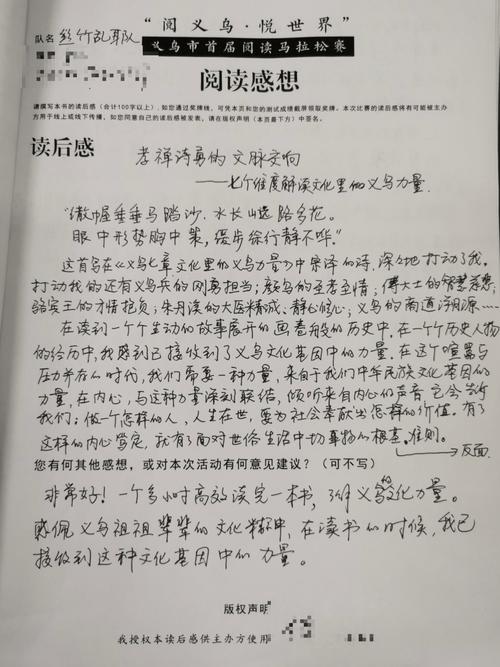 “阅义乌·悦世界”
队名 丝竹乱耳队
义乌市首届阅读马拉松赛
阅读感想
请撰写本书的读后感（合计100字以上），如您通过奖牌线，可凭本页和您的测试成绩截屏领取奖牌。本次比赛的读后感将有可能被主办
方用于线上或线下传播，如您同意自己的读后感被发表，请在版权声明（本页最下方）中签名。
读后感
孝禅诗勇的文脉交响
——七个维度解读文化里的义乌力量
“伞幄垂垂马踏沙，水长山远路多花。
眼中形势胸中策，缓步徐行静不哗。”
这首写在《义乌七章文化里的义乌力量》中宗泽的诗，深深地打动了我。
打动我的还有义乌兵的刚勇担当；颜乌的至孝至情；傅大士的智慧慈悲；
骆宾王的才情抱负；朱丹溪的大医精成、静心修心；义乌的商道浮图源……
在读到一个个生动的故事展开的画卷般的历史中，在一个个历史人物
的经历中，我感到已接收到了义乌文化基因中的力量。在这个喧嚣与
压力并存的时代，我们需要一种力量，来自于我们中华民族文化基因的
力量，在内心，与这种力量深刻联结，倾听来自内心的声音，它会告诉
我们：做一个怎样的人，人生在世，要为社会奉献出怎样的价值。有了
这样的内心笃定，就有了面对世俗生活中一切事物的根基、准则。
→反面.
您有何其他感想，或对本次活动有何意见建议？（可不写）
非常好！一个多小时高效读完一本书，了解义乌的文化力量。
感佩义乌祖祖辈辈的文化精神，在读书的时候，我已
接收到这种文化基因中的力量。
版权声明
我授权本读后感供主办方使用